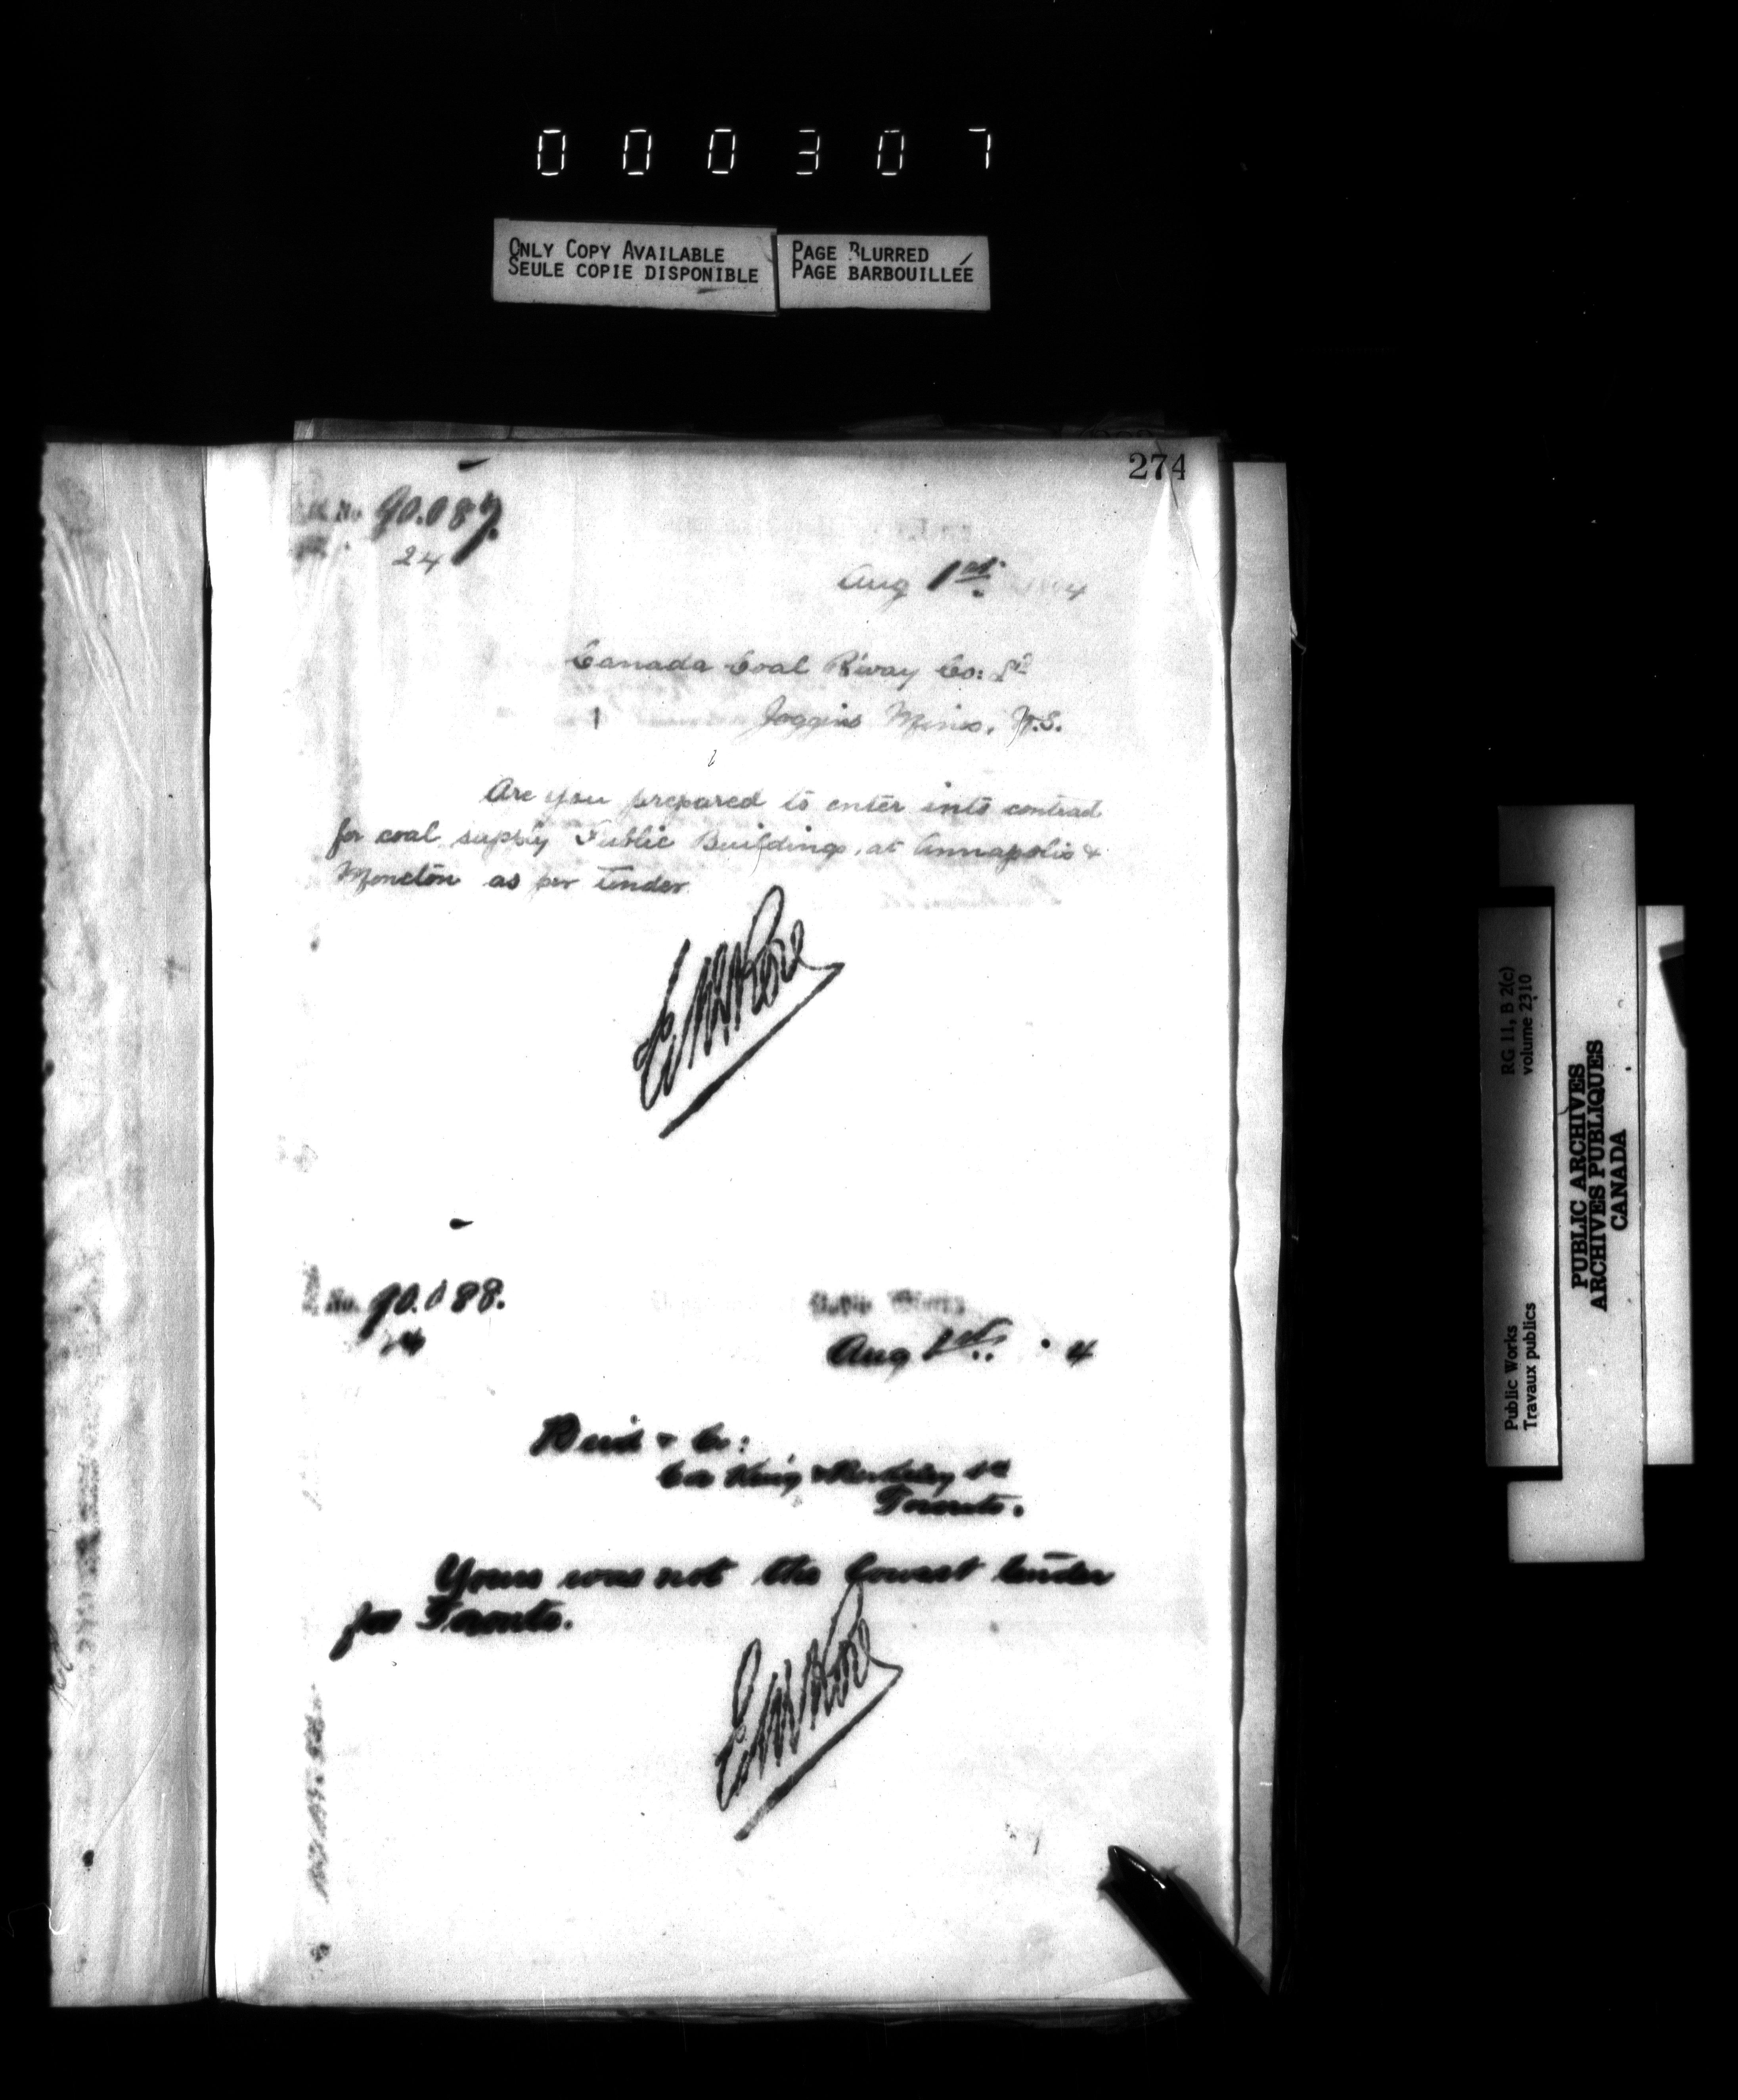 000307
ONLY COPY AVAILABLE
SEULE COPIE DISPONIBLE
PAGE BLURRED
PAGE BARBOUILLÉE
274
No. 90.087.
24
Aug 1st 4
Canada Coal R'way Co: Ld
Joggins Mines, N.S.
Are you prepared to enter into contract
for coal supply Public Buildings, at Annapolis &
Moncton as per tender.
No. 90.088.
24
Aug 1st 4
Reid & Co:
Cor King & Berkeley St
Toronto.
Yours was not the lowest tender
for Toronto.
RG 11, B 2(c)
volume 2310
Public Works
Travaux publics
PUBLIC ARCHIVES
ARCHIVES PUBLIQUES
CANADA